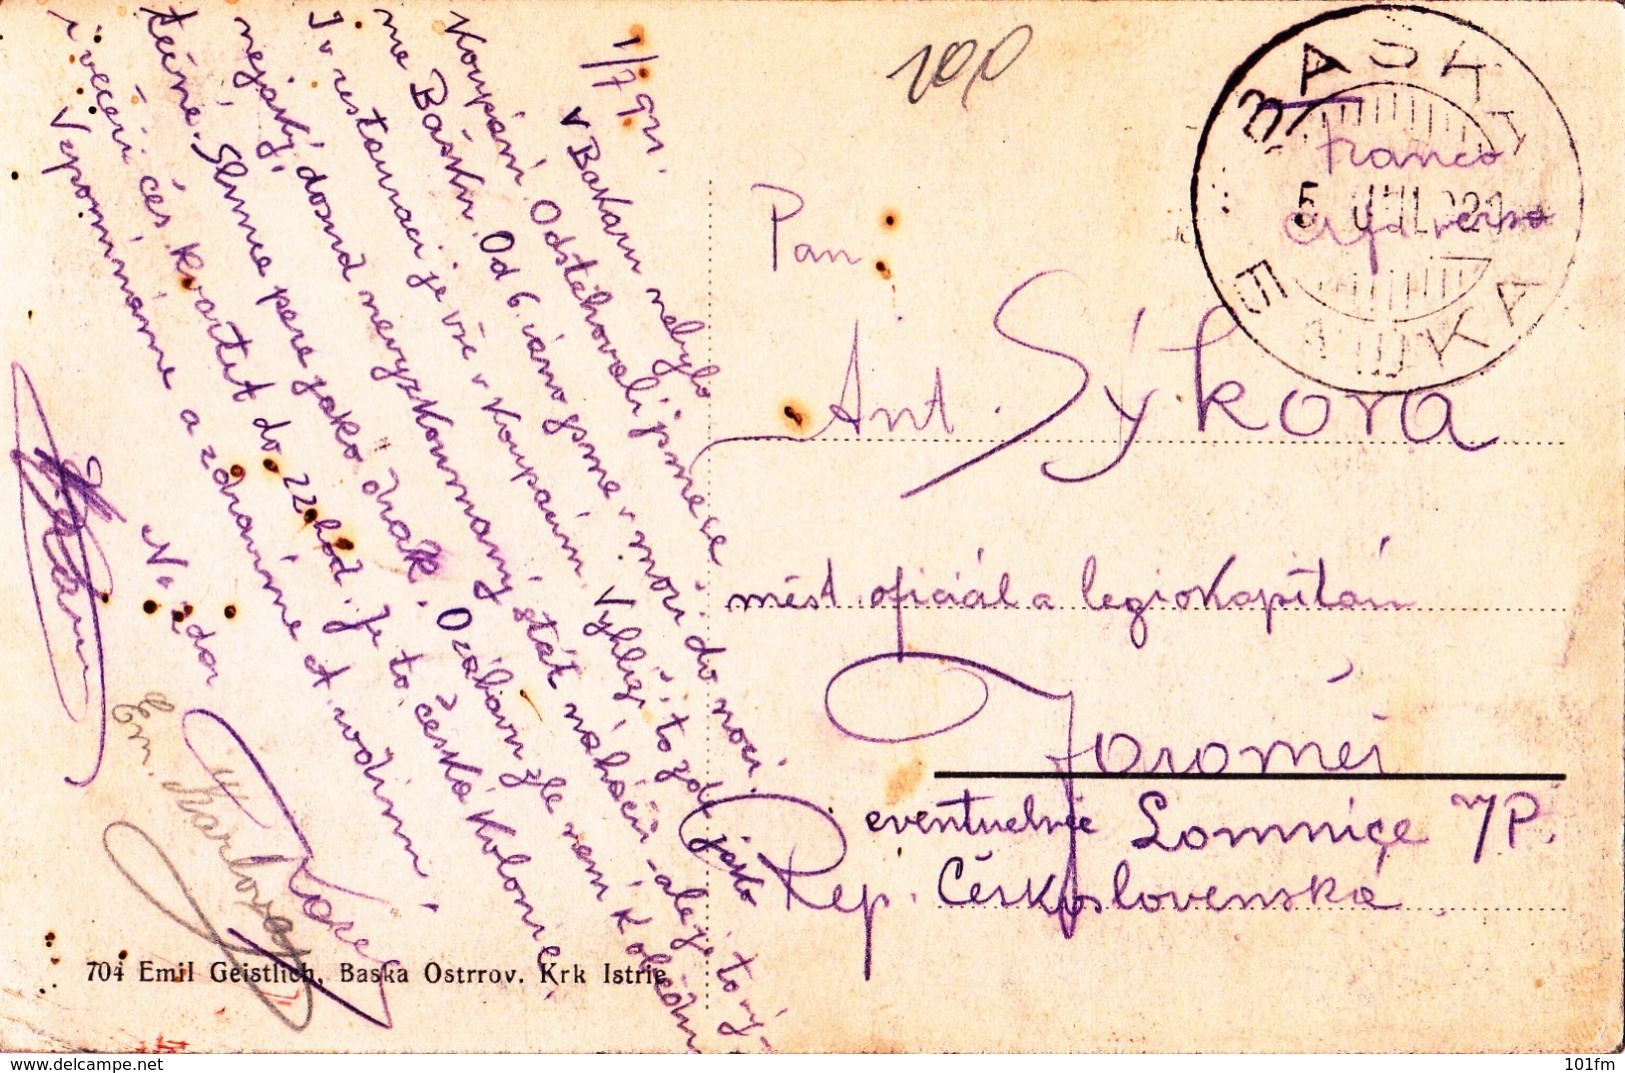 1/7 921.
v Bakaru nebylo
Koupání. Odstěhovali jsme se
me Bašku. Od 6. ráno jsme v moři do noci.
I v restauraci je vše v koupacím. Vyhlíží to zde jako
nejaký dosud nevyzkoumaný stát naháčů - ale je to vý-
tečné. Slunce pere jako drak. O zábavu zle není k obědu
i večeři čes. kvartet do 22 hod. Je to česká kolonie.
Vzpomínáme a zdravíme et rodinu.
Nazdar
Em. Karlovac
200
BAŠKA
5 JUL 921
BAŠKA
Franco
Pan
Ant. Sýkora
měst. oficiál a legiokapitán
Jaroměř
eventuelně Lomnice n/P.
Rep. Československá.
704 Emil Geistlich, Baska Ostrrov. Krk Istrie
delcampe.net
101fm